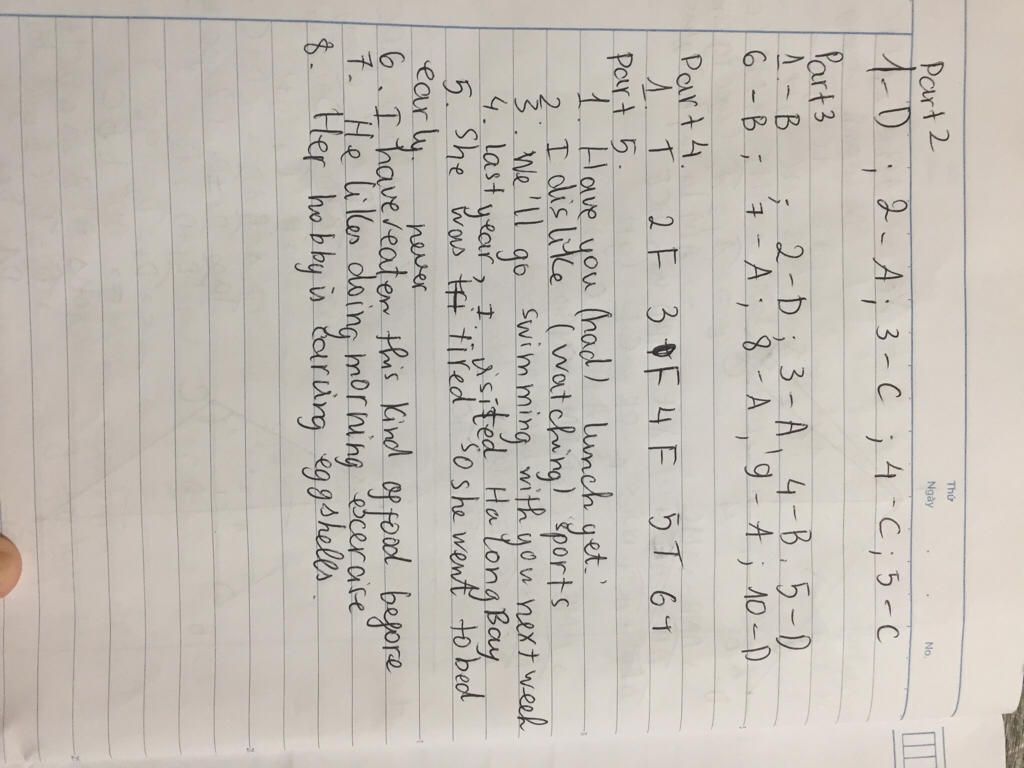 Thứ
Ngày
No.
Part 2
1-D ; 2-A; 3-C ; 4-C; 5-C
Part 3
1-B ; 2-D; 3-A, 4-B. 5-D
6-B ; 7-A; 8-A, 9-A; 10-D
Part 4.
1. T 2F 3 F 4F 5T 6T
Part 5.
1. Have you (had) lunch yet.
2. I dislike (watching) sports
3. We'll go swimming with you next week
4. last year, I visited Ha Long Bay
5. She was tired so she went to bed
early. never
6. I have eaten this kind of food before
7. He likes doing morning excercise
8. Her hobby is carving eggshells.